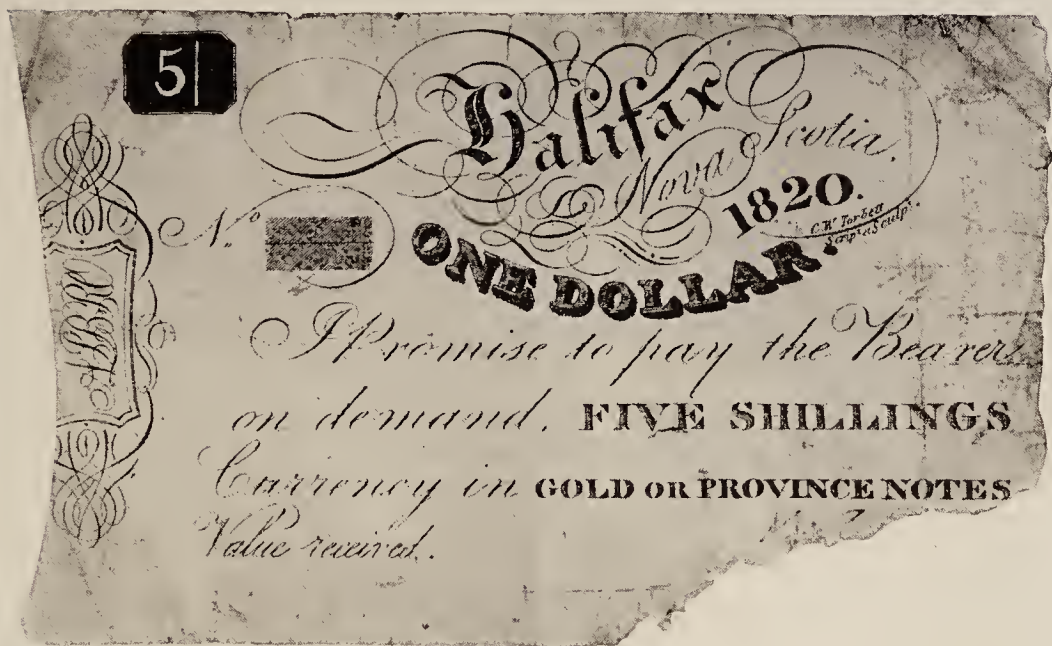 5|
Halifax
Nova Scotia.
1820.
C.W. Torbett
Script. & Sculpt.
No.
ONE DOLLAR.
I Promise to pay the Bearer
on demand, FIVE SHILLINGS
Currency in GOLD OR PROVINCE NOTES
Value received.